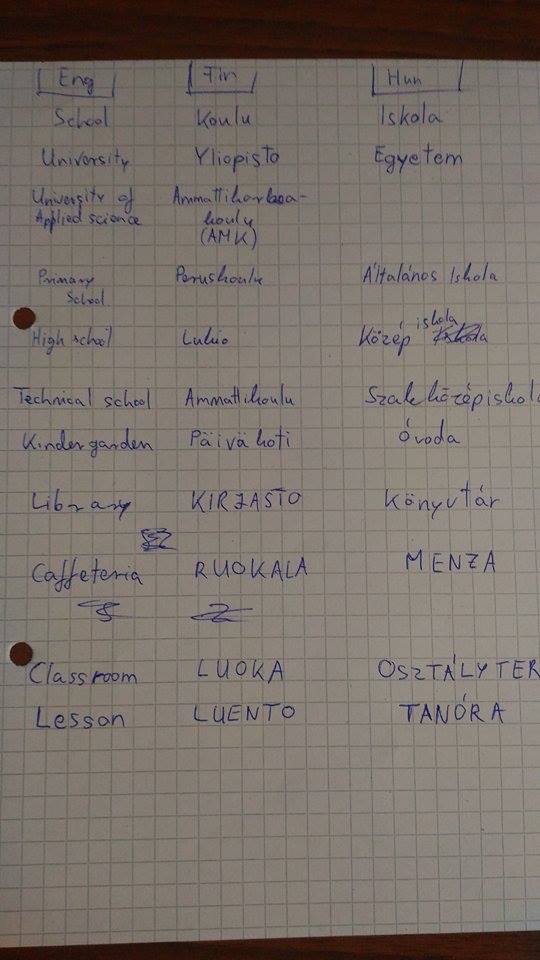 Eng Fin Hun
School Koulu Iskola
University Yliopisto Egyetem
University of Ammattikorkea-
Applied science koulu
(AMK)
Primary Peruskoulu Általános Iskola
School
iskola
High school Lukio Közép
Technical school Ammattikoulu Szakközépiskola
Kindergarden Päiväkoti Óvoda
Library KIRJASTO Könyvtár
Caffeteria RUOKALA MENZA
Classroom LUOKA OSZTÁLYTER
Lesson LUENTO TANÓRA